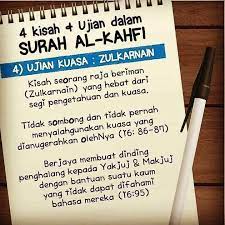 4 kisah 4 Ujian dalam
SURAH AL-KAHFI
4) UJIAN KUASA : ZULKARNAIN
Kisah seorang raja beriman
(Zulkarnain) yang hebat dari
segi pengetahuan dan kuasa.
Tidak sombong dan tidak pernah
menyalahgunakan kuasa yang
dianugerahkan olehNya (16: 86-87)
Berjaya membuat dinding
penghalang kepada Yakjuj & Makjuj
dengan bantuan suatu kaum
yang tidak dapat difahami
bahasa mereka (16:95)